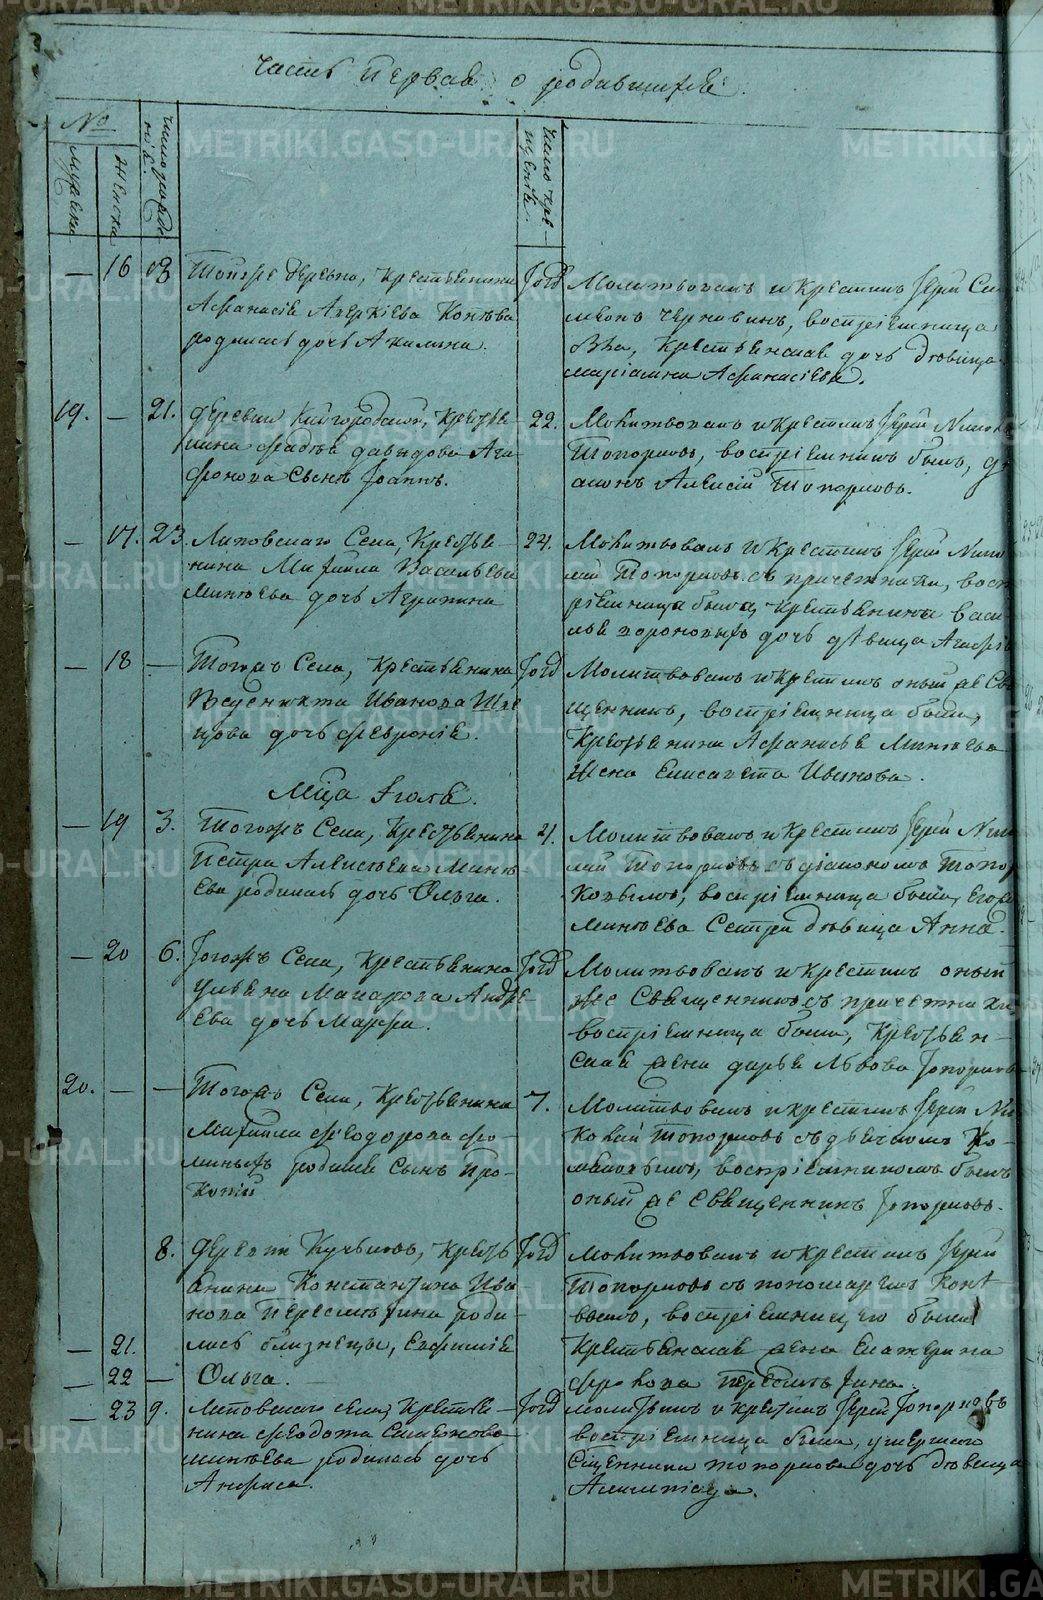 Часть первая о родившихся.
№
Мужска
Женска
число рожде
нія.
число кре-
щенія.
— 16
Тойже деревни, крестьянина
Афанасія Аверкіева Конева
родилась дочь Акилина.
Молитвовалъ и крестилъ Іерей Си
меонъ Черновинъ, воспріемница
была, крестьянская дочь дѣвица
Маріамна Афанасіева.
19. — 21.
деревни Кайгородской, крестья
нина Фадѣя Давыдова Ага
фонова сынъ Іоаннъ.
22.
Молитвовалъ и крестилъ Іерей Никол
Топорковъ, воспріемникъ былъ, ді
аконъ Алексій Топорковъ.
— 17. 23
Липовскаго Села, крестья
нина Михаила Васильева
Минѣева дочь Агрипина
24.
Молитвовалъ и крестилъ Іерей Нико
лай Топорковъ съ причетники, восп
ріемница была, крестьянина Васи
лья дочь дѣвица
— 18 —
Тогожъ Села, крестьянина
Венедикта Иванова Шве
цова дочь Февронія.
Молитвовалъ и крестилъ оный же Свя
щенникъ, воспріемница была,
Крестьянина Афанасья Минѣева
жена Елисавета Иванова.
Мца Іюля.
— 19 3.
Тогожъ Села, Крестьянина
Петра Алексѣева Минѣ
ева родилась дочь Ольга.
4.
Молитвовалъ и крестилъ Іерей Нико
лай Топорковъ съ діакономъ Топор
ковымъ, воспріемница была, Егора
Минѣева Сестра дѣвица Анна.
— 20 6.
Тогожъ Села, крестьянина
Ульяна Макарова Андре
ева дочь Марфа.
Молитвовалъ и крестилъ оный
же Священникъ съ причетники
воспріемница была, крестьян-
ская жена Дарья Львова Топоркова
20. — —
Тогожъ Села, крестьянина
Михаила Феодорова Фо
миныхъ родился сынъ Про-
копій
7.
Молитвовалъ и крестилъ Іерей Ни
колай Топорковъ съ дьячкомъ
воспріемникомъ былъ
оный же Священникъ Топорковъ.
8.
деревни крестья
нина Константина Ива
нова Пересмѣхина роди
лись близнецы, Евфимія
— 21.
— 22 — Ольга.
Молитвовалъ и крестилъ Іерей
Топорковъ съ пономаремъ
воспріемницею была
Крестьянская жена Екатерина
Фролова Пересмѣхина.
— 23 9.
Липовскаго села, крестья-
нина Феодота Симеонова
Минѣева родилась дочь
Анфиса.
Молитвовалъ и крестилъ Іерей Топорковъ
воспріемница была, умершаго
Священника Топоркова дочь дѣвица
METRIKI.GASO-URAL.RU